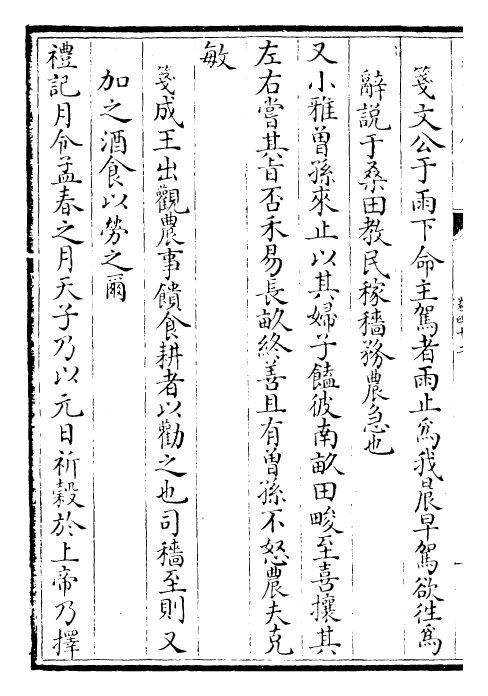 箋文公于雨下命主駕者雨止為我晨早駕欲往為
辭說于桑田教民稼穡務農急也
又小雅曾孫來止以其婦子饁彼南畝田畯至喜攘其
左右嘗其旨否禾易長畝終善且有曾孫不怒農夫克
敏
箋成王出觀農事饋食耕者以勸之也司穡至則又
加之酒食以勞之爾
禮記月令孟春之月天子乃以元日祈穀於上帝乃擇